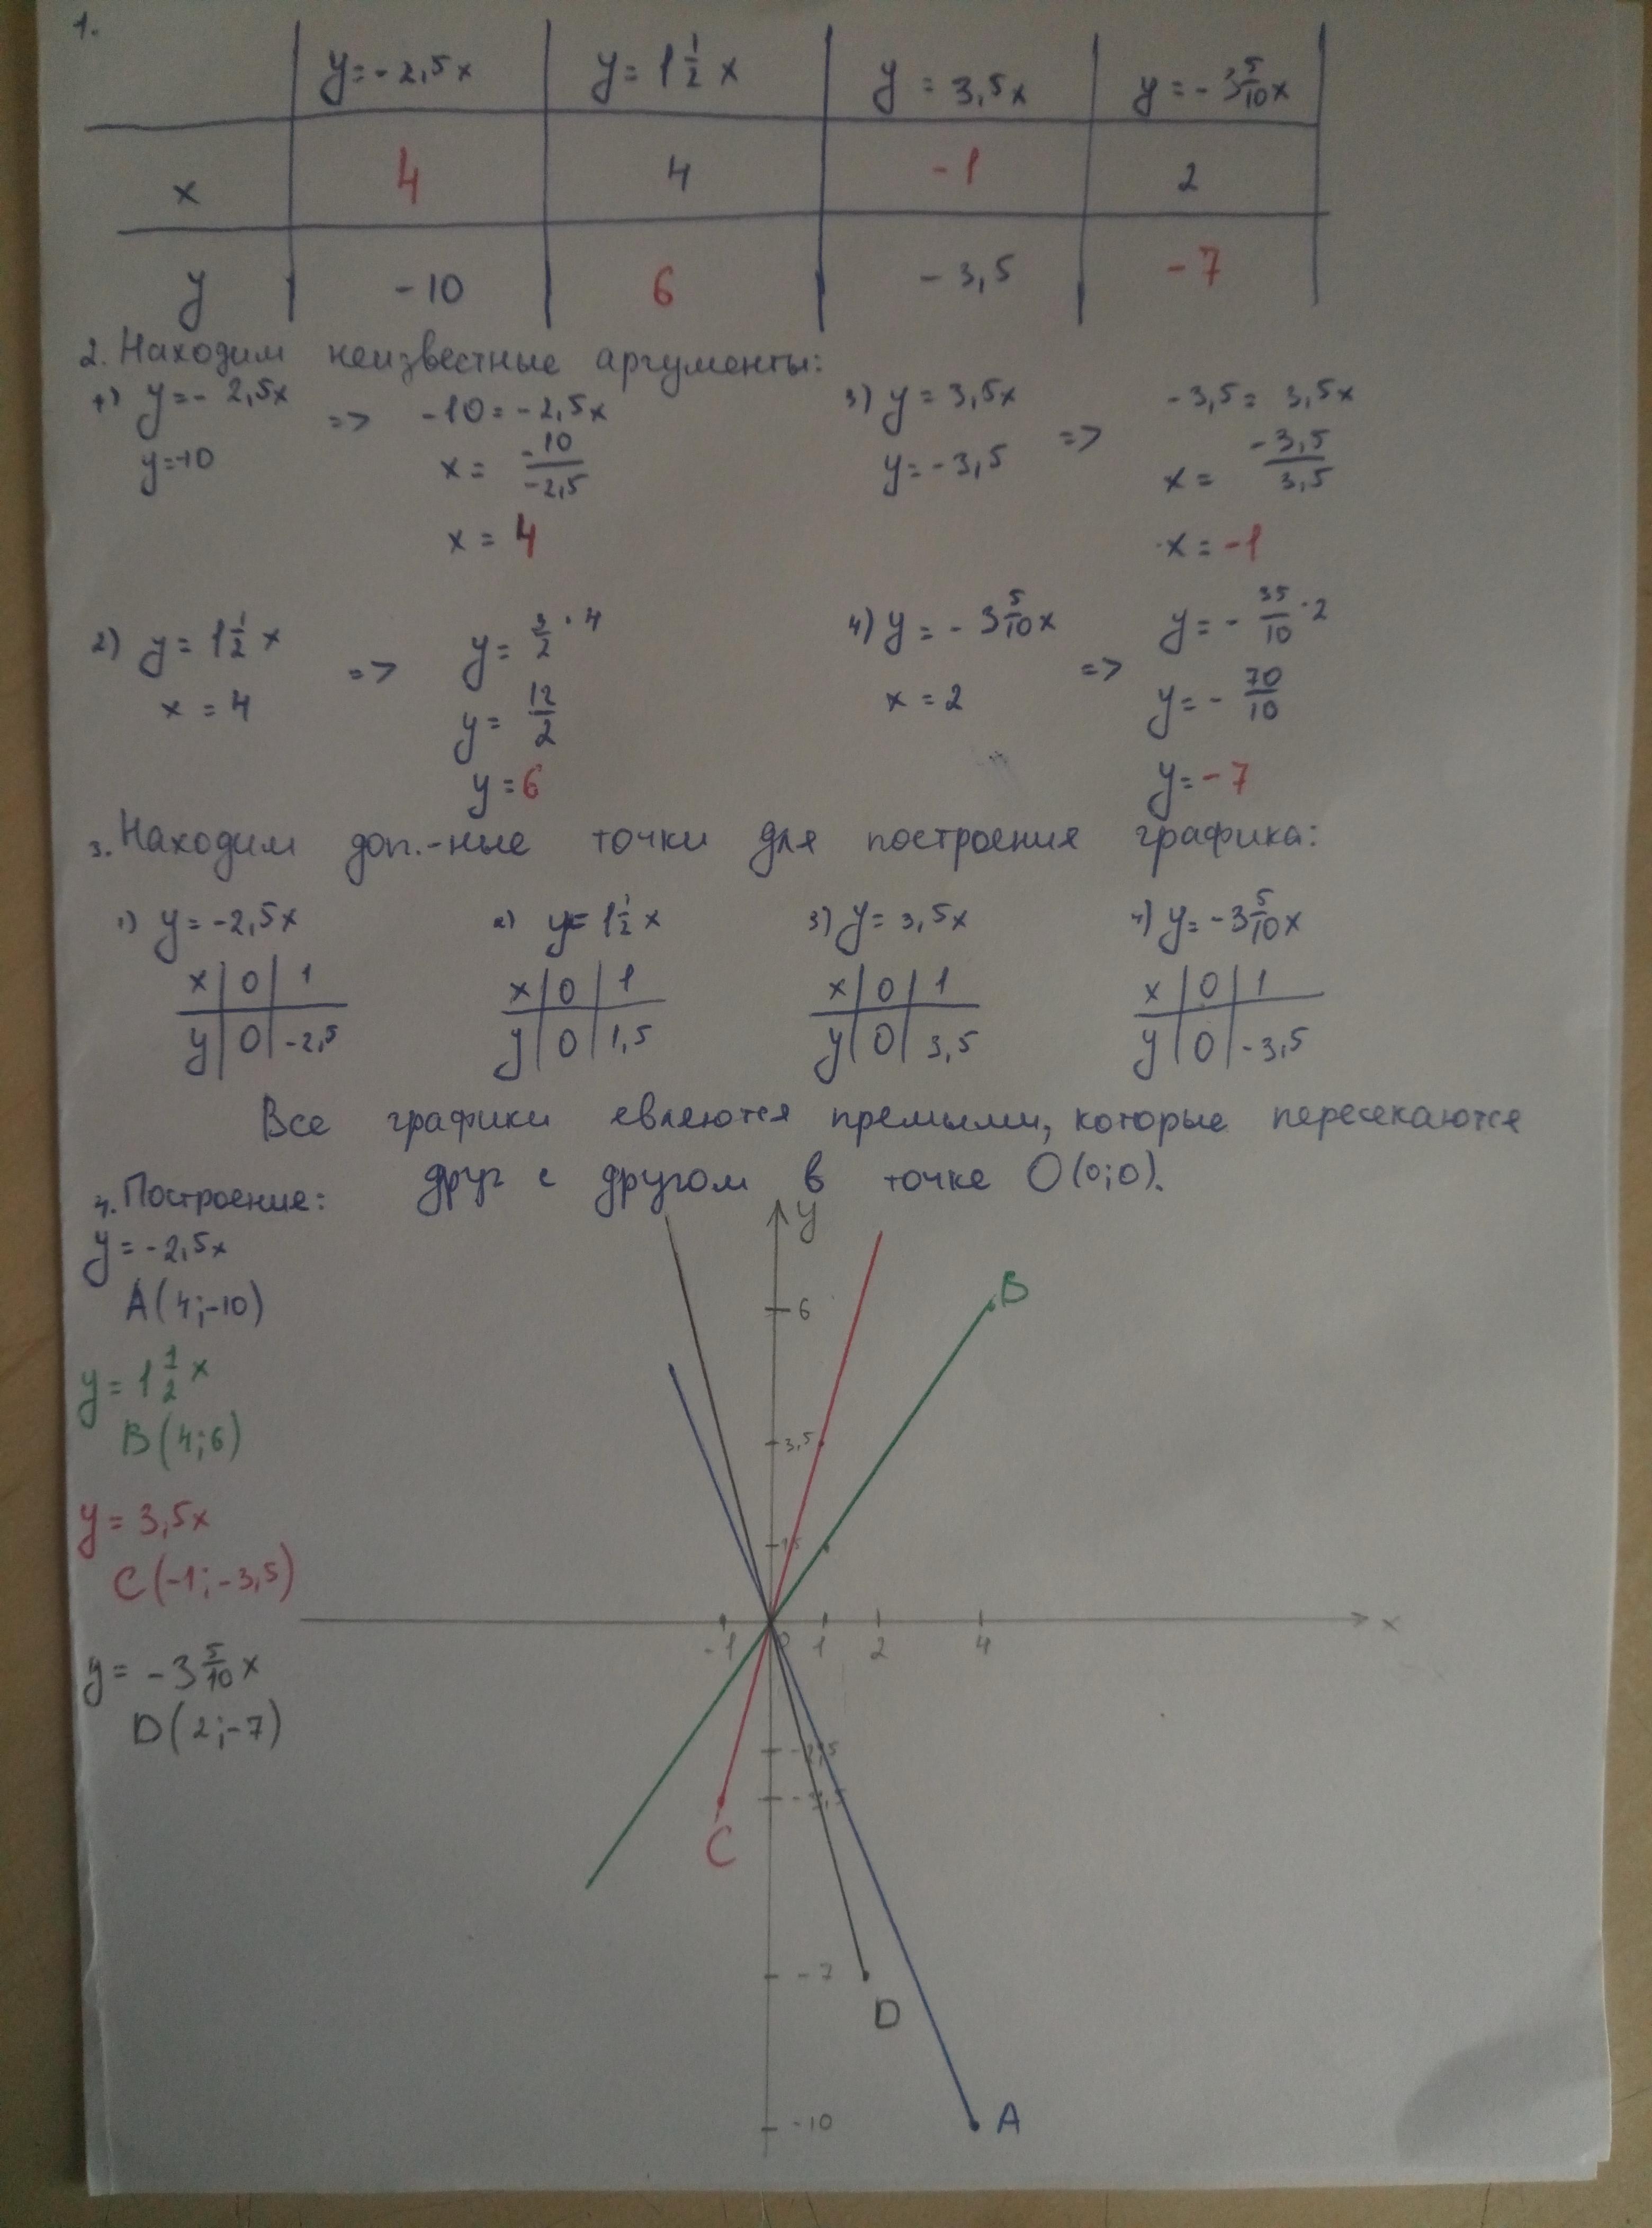 1.
y=-2,5x y=1 1/2 x y=3,5x y=-3 5/10 x
x 4 4 -1 2
y -10 6 -3,5 -7
2. Находим неизвестные аргументы:
1) y=-2,5x => -10=-2,5x
y=-10 x= -10/-2,5
x=4
3) y=3,5x => -3,5=3,5x
y=-3,5 x= -3,5/3,5
x=-1
2) y=1 1/2 x => y= 3/2 · 4
x=4 y= 12/2
y=6
4) y=-3 5/10 x => y=- 35/10 · 2
x=2 y=- 70/10
y=-7
3. Находим доп.-ные точки для построения графика:
1) y=-2,5x 2) y=1 1/2 x 3) y=3,5x 4) y=-3 5/10 x
x 0 1 x 0 1 x 0 1 x 0 1
y 0 -2,5 y 0 1,5 y 0 3,5 y 0 -3,5
Все графики евлеются премыми, которые пересекаются
друг с другом в точке O(0;0).
4. Построение:
y=-2,5x
A(4;-10)
y=1 1/2 x
B(4;6)
y=3,5x
C(-1;-3,5)
y=-3 5/10 x
D(2;-7)
y
B
6
3,5
1,5
-1 0 1 2 4 x
-2,5
-3,5
C
-7
D
-10 A